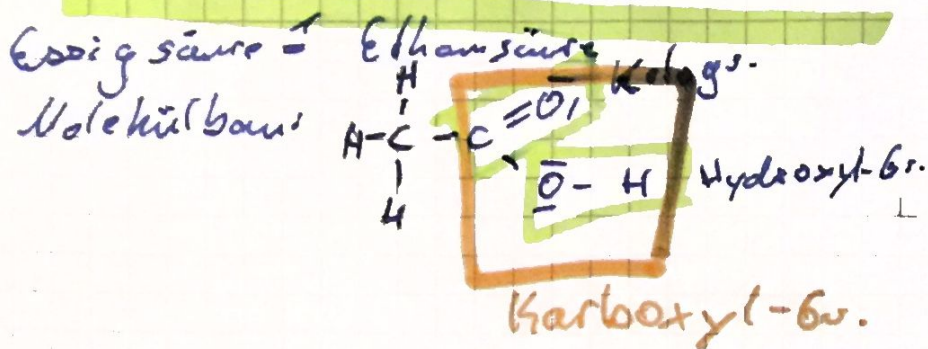 Essigsäure ≙ Ethansäure
Molekülbau:
H
H-C-C
=O
O-H
H
Hydroxyl-Gr.
Karboxyl-Gr.